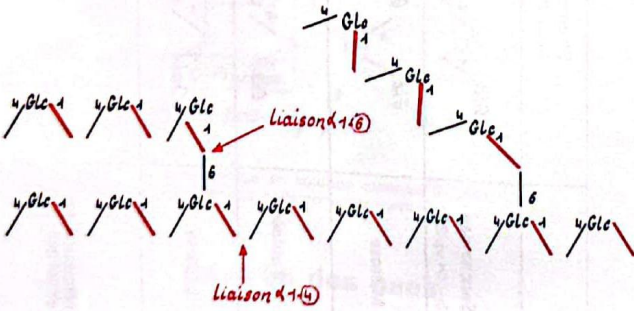 4 Glc 1
4 Glc 1
4 Glc 1
4 Glc 1 4 Glc 1 4 Glc 1
liaison α 1-6
6 6
4 Glc 1 4 Glc 1 4 Glc 1 4 Glc 1 4 Glc 1 4 Glc 1 4 Glc 1 4 Glc
liaison α 1-4